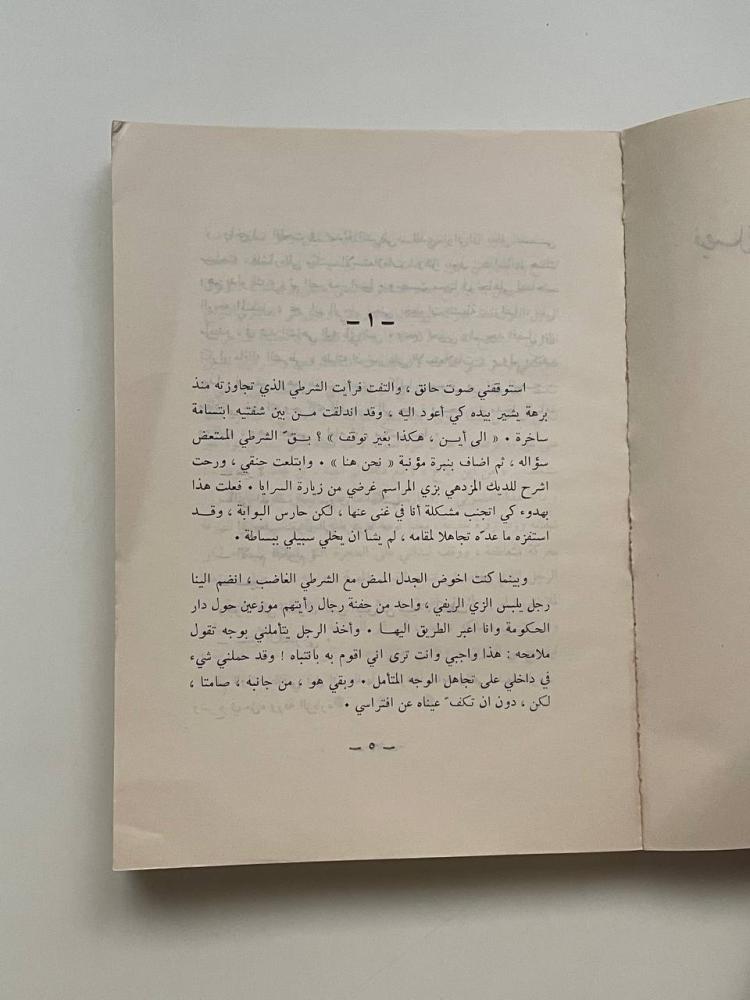 - ١ -
استوقفني صوت حانق ، والتفت فرأيت الشرطي الذي تجاوزته منذ
برهة يشير بيده كي أعود اليه ، وقد اندلقت من بين شفتيه ابتسامة
ساخرة . « الى أين ، هكذا بغير توقف » ؟ بقّ الشرطي الممتعض
سؤاله ، ثم اضاف بنبرة مؤنبة « نحن هنا » . وابتلعت حنقي ، ورحت
اشرح للديك المزدهي بزي المراسم غرضي من زيارة السرايا . فعلت هذا
بهدوء كي اتجنب مشكلة أنا في غنى عنها ، لكن حارس البوابة ، وقد
استفزه ما عدّه تجاهلا لمقامه ، لم يشأ ان يخلي سبيلي ببساطة .
وبينما كنت اخوض الجدل الممض مع الشرطي الغاضب ، انضم الينا
رجل يلبس الزي الريفي ، واحد من حفنة رجال رأيتهم موزعين حول دار
الحكومة وانا اعبر الطريق اليها . وأخذ الرجل يتأملني بوجه تقول
ملامحه : هذا واجبي وانت ترى اني اقوم به بانتباه ! وقد حملني شيء
في داخلي على تجاهل الوجه المتأمل . وبقي هو ، من جانبه ، صامتا ،
لكن ، دون ان تكفّ عيناه عن افتراسي .
- ٥ -